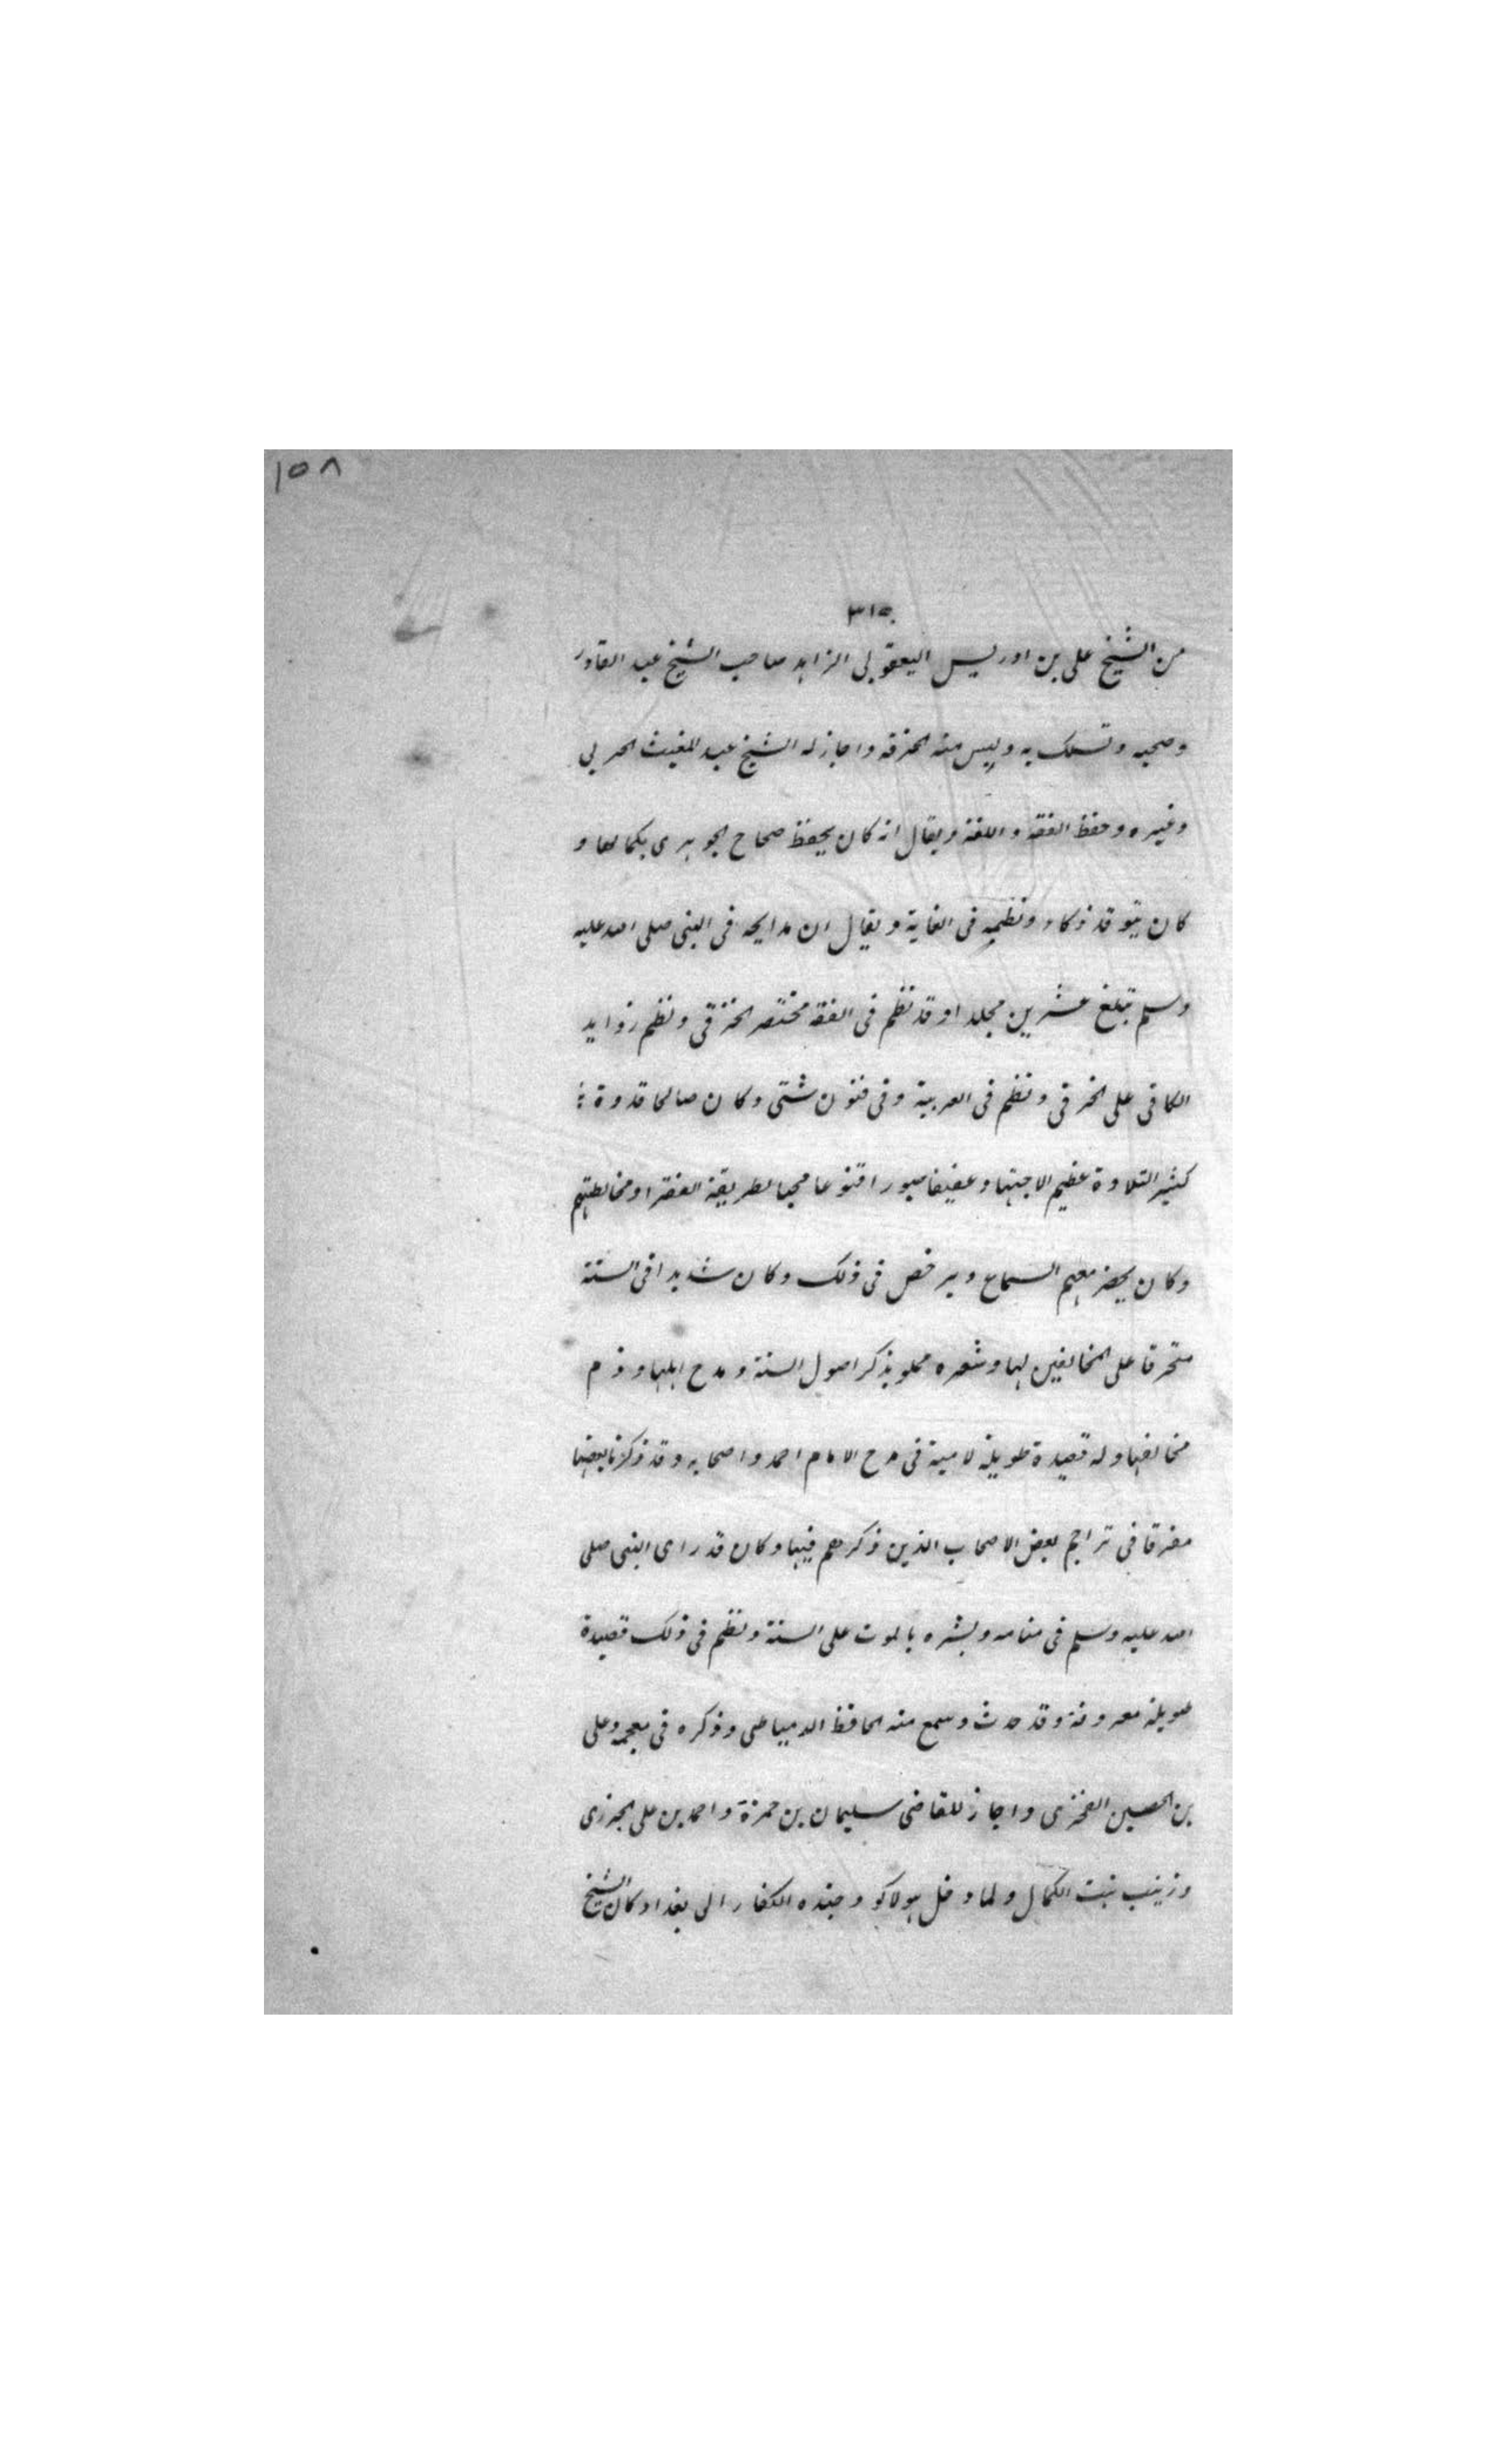 ١٥٨
٣١٥
من الشيخ على بن ادريس اليعقوبى الزاهد صاحب الشيخ عبد القادر
وصحبه وتسلك به ولبس منه الخرقة واجاز له الشيخ عبد المغيث الحربى
وغيره وحفظ الفقه واللغة ويقال انه كان يحفظ صحاح الجوهرى بكمالها و
كان يتوقد ذكاء ونظمه فى الغاية ويقال ان مدايحه فى النبى صلى الله عليه
وسلم تبلغ عشرين مجلدا وقد نظم فى الفقه مختصر الخرقى ونظم زوايد
الكافى على الخرقى ونظم فى العربية وفى فنون شتى وكان صالحا قدوة
كثير التلاوة عظيم الاجتهاد عفيفا صبورا قنوعا محبا لطريقة الفقرا ومخالطتهم
وكان يحضر معهم السماع ويرخص فى ذلك وكان شديدا فى السنة
متحرقا على المخالفين لها وشعره مملو بذكر اصول السنة ومدح اهلها وذم
مخالفيها وله قصيدة طويلة لامية فى مدح الامام احمد واصحابه وقد ذكرنا بعضها
مفرقا فى تراجم بعض الاصحاب الذين ذكرهم فيها وكان قد راى النبى صلى
الله عليه وسلم فى منامه وبشره بالموت على السنة ونظم فى ذلك قصيدة
طويلة معروفة وقد حدث وسمع منه الحافظ الدمياطى وذكره فى معجمه وعلى
بن الحصين الفخرى واجاز للقاضى سليمان بن حمزة واحمد بن على الجزرى
وزينب بنت الكمال ولما دخل هولاكو وجنده الكفار الى بغداد كان الشيخ